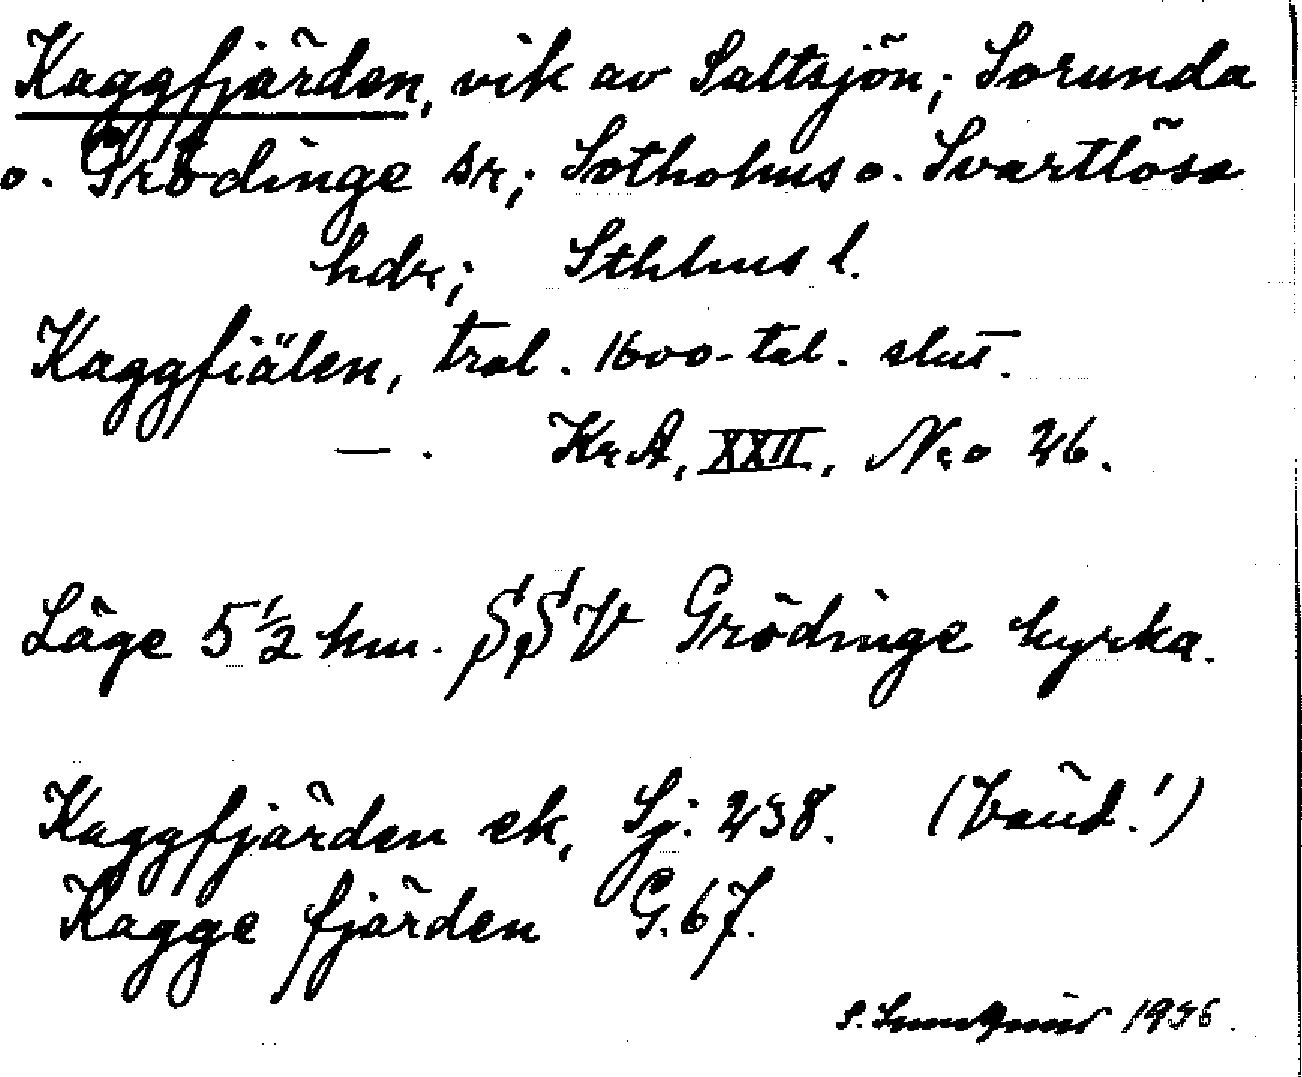 Kaggfjärden, vik av Saltsjön; Sorunda
o. Grödinge sn; Sotholms o. Svartlösa
hdr; Sthlms l.
Kaggfiälen, trol. 1600-tal. slut.
— . KrA, XXII, Nro 26.
Läge 5 1/2 km. SSV Grödinge kyrka.
Kaggfjärden ek. Sj. 238.
Kagge fjärden G. 67.
1936.